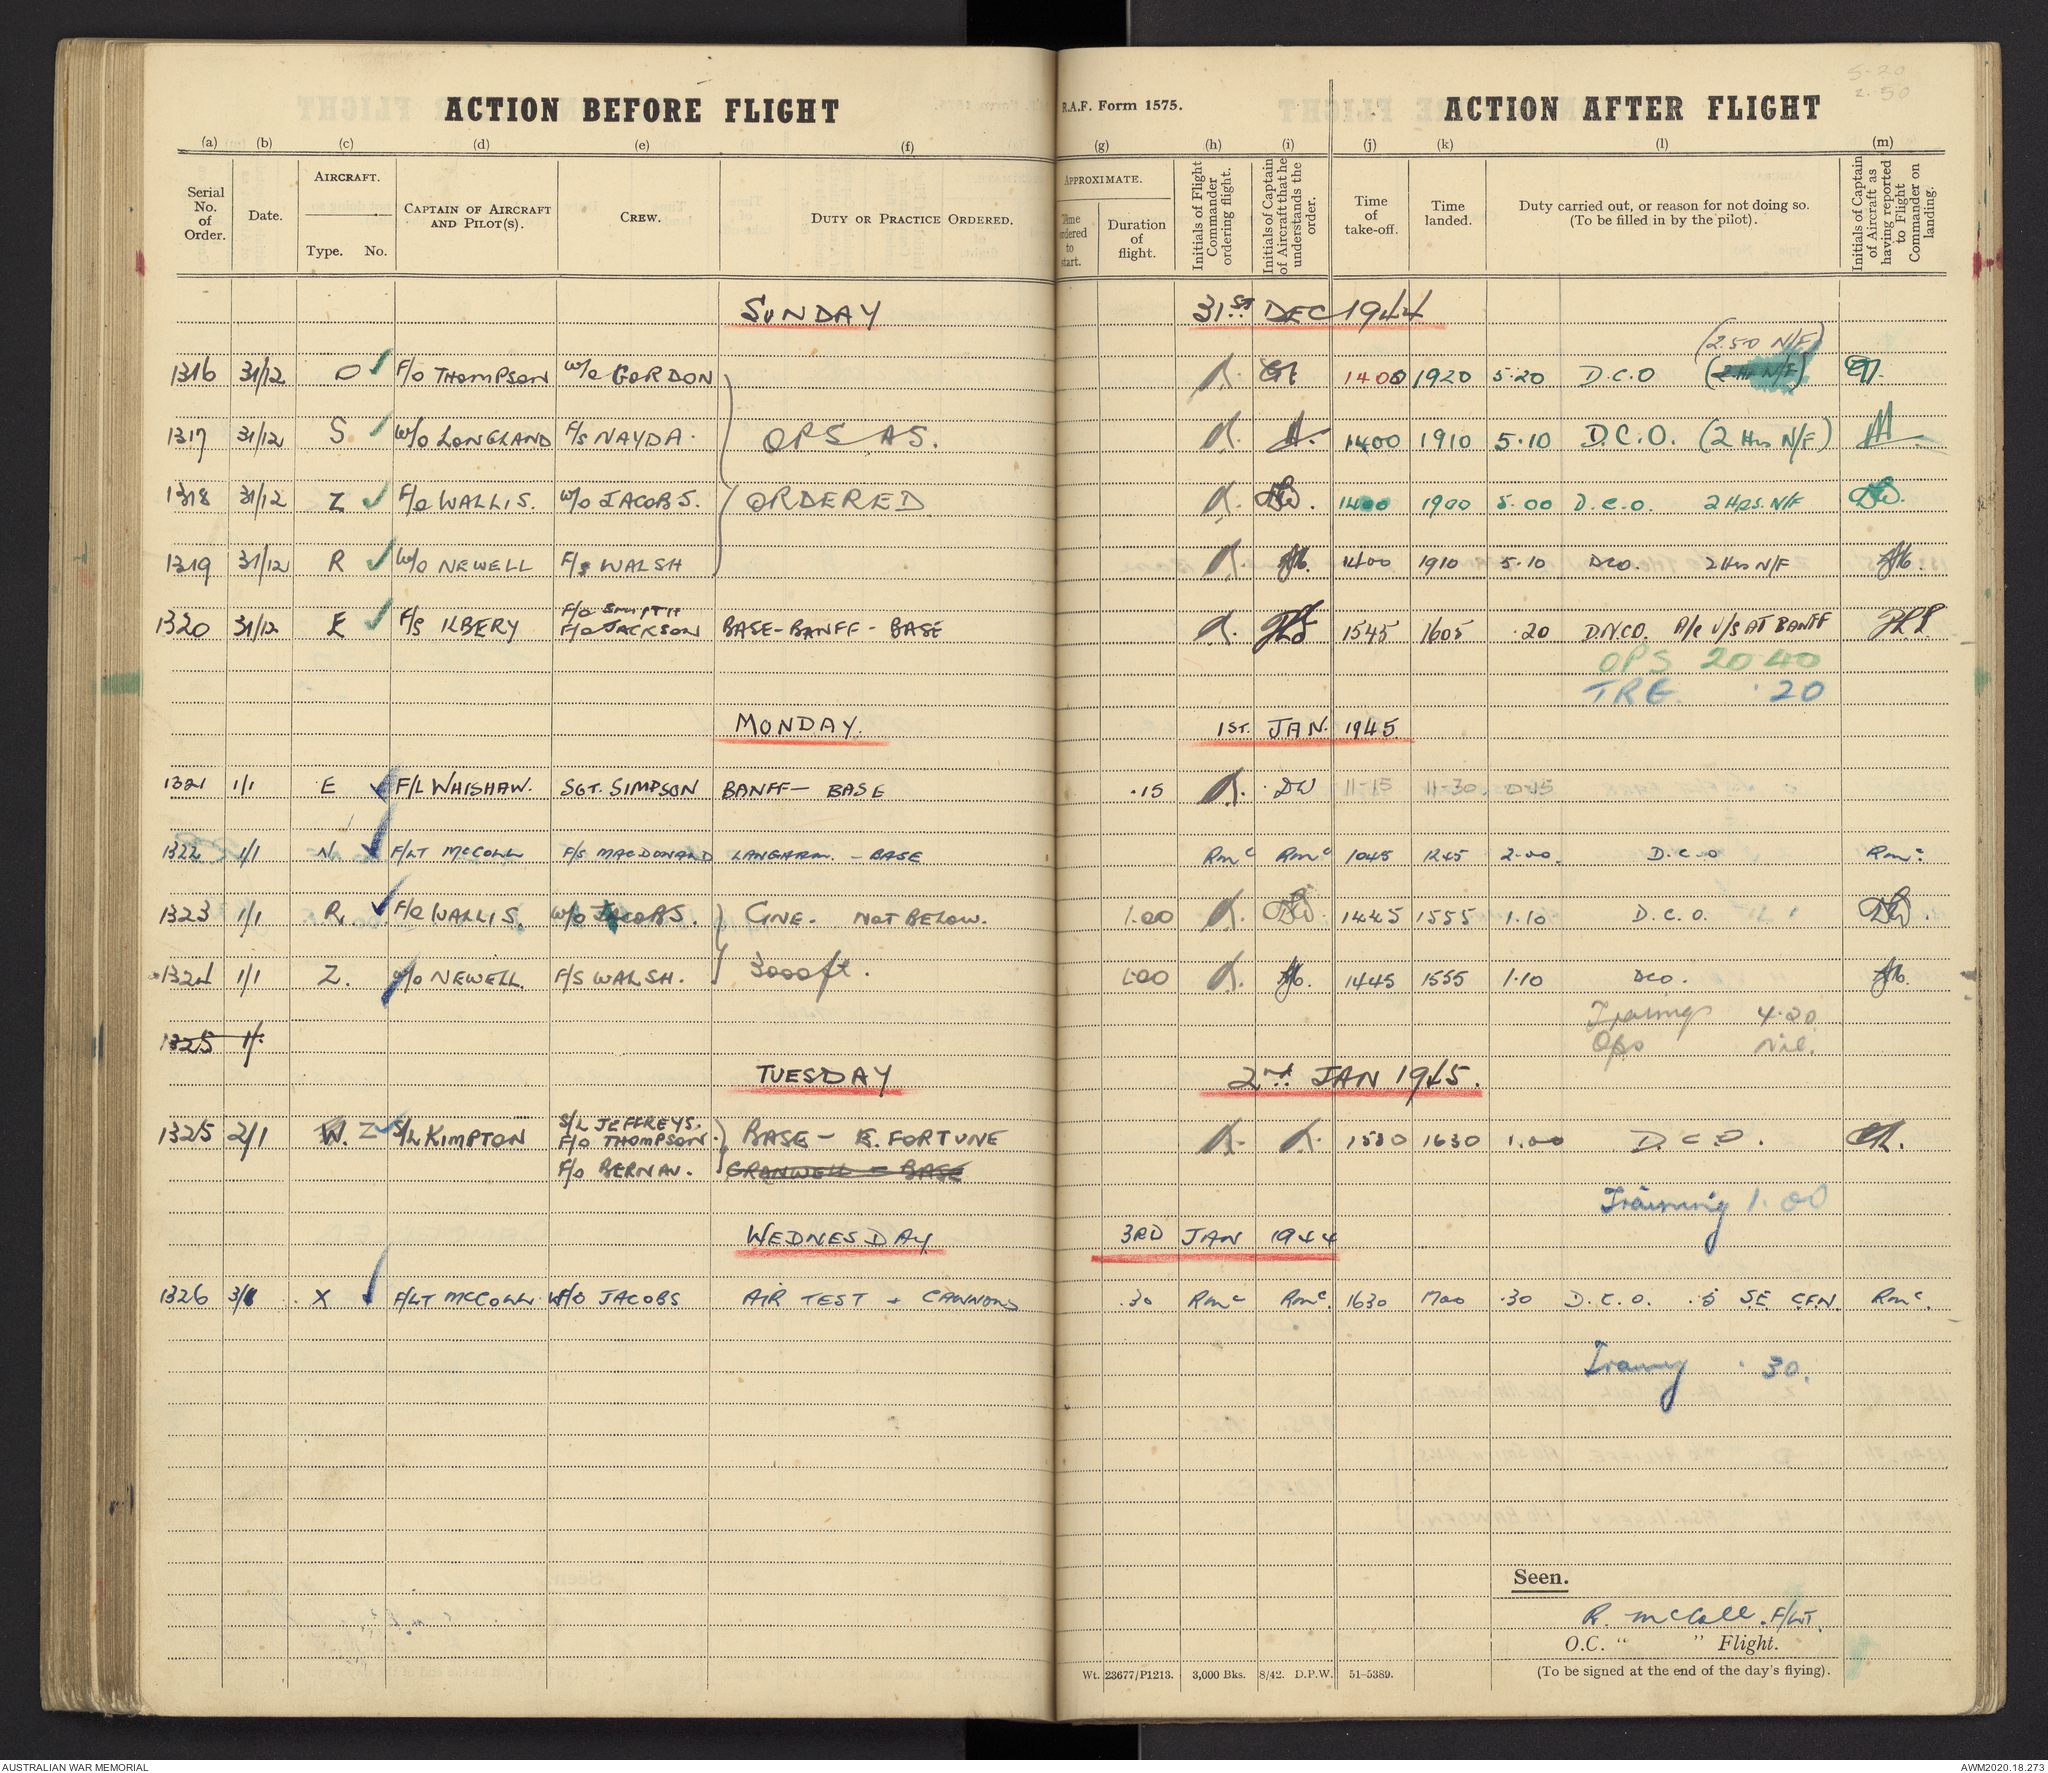 5.20
2.50
ACTION BEFORE FLIGHT
R.A.F. Form 1575.
ACTION AFTER FLIGHT
(a) (b) (c) (d) (e) (f) (g) (h) (i) (j) (k) (l) (m)
Serial No. of Order.
Date.
AIRCRAFT.
Type. No.
CAPTAIN OF AIRCRAFT AND PILOT(S).
CREW.
DUTY OR PRACTICE ORDERED.
APPROXIMATE.
Time ordered to start.
Duration of flight.
Initials of Flight Commander ordering flight.
Initials of Captain of Aircraft that he understands the order.
Time of take-off.
Time landed.
Duty carried out, or reason for not doing so. (To be filled in by the pilot).
Initials of Captain of Aircraft as having reported to Flight Commander on landing.
SUNDAY 31ST DEC 1944
(2.50 N/F)
1316 31/12 O F/O THOMPSON W/O GORDON 1400 1920 5.20 D.C.O (2 Hr N/F)
1317 31/12 S W/O LONGLAND F/S NAYDA. OPS AS. 1400 1910 5.10 D.C.O. (2 Hrs N/F)
1318 31/12 Z F/O WALLIS. W/O JACOBS. ORDERED 1400 1900 5.00 D.C.O. 2 HRS. N/F
1319 31/12 R W/O NEWELL F/S WALSH 1400 1910 5.10 DCO. 2 Hrs N/F
F/O SMITH
1320 31/12 E F/S ILBERY F/O JACKSON BASE - BANFF - BASE 1545 1605 .20 D.N.C.O. A/C U/S AT BANFF
OPS 20 40
TRE. .20
MONDAY. 1ST. JAN. 1945
1321 1/1 E F/L WHISHAW. SGT. SIMPSON BANFF - BASE .15 DW 11-15 11-30. 0-15
1322 1/1 N F/LT McCOLL F/S MACDONALD LANGHAM. - BASE RMc RMc 1045 1245 2.00. D.C.O RMc
1323 1/1 R. F/O WALLIS. W/O JACOBS. CINE. NOT BELOW. 1.00 1445 1555 1.10 D.C.O.
1324 1/1 Z. W/O NEWELL. F/S WALSH. 3000ft. 1.00 1445 1555 1.10 DCO.
Training 4.20
1325 1/1
Ops Nil.
TUESDAY 2nd. JAN 1945.
S/L JEFFREYS.
1325 2/1 W. Z S/L KIMPTON F/O THOMPSON. BASE - E. FORTUNE 1530 1630 1.00 D.C.O.
F/O BERNAU. CRANWELL - BASE
Training 1.00
WEDNESDAY 3RD JAN 1944
1326 3/1 X F/LT McCOLL W/O JACOBS AIR TEST + CANNONS .30 RMc RMc. 1630 1700 .30 D.C.O. .5 S.E. CFN. RMc.
Training .30.
Seen.
R. McColl. F/LT.
O.C. " " Flight.
Wt. 23677/P1213. 3,000 Bks. 8/42. D.P.W. 51-5389.
(To be signed at the end of the day's flying).
AUSTRALIAN WAR MEMORIAL
AWM2020.18.273